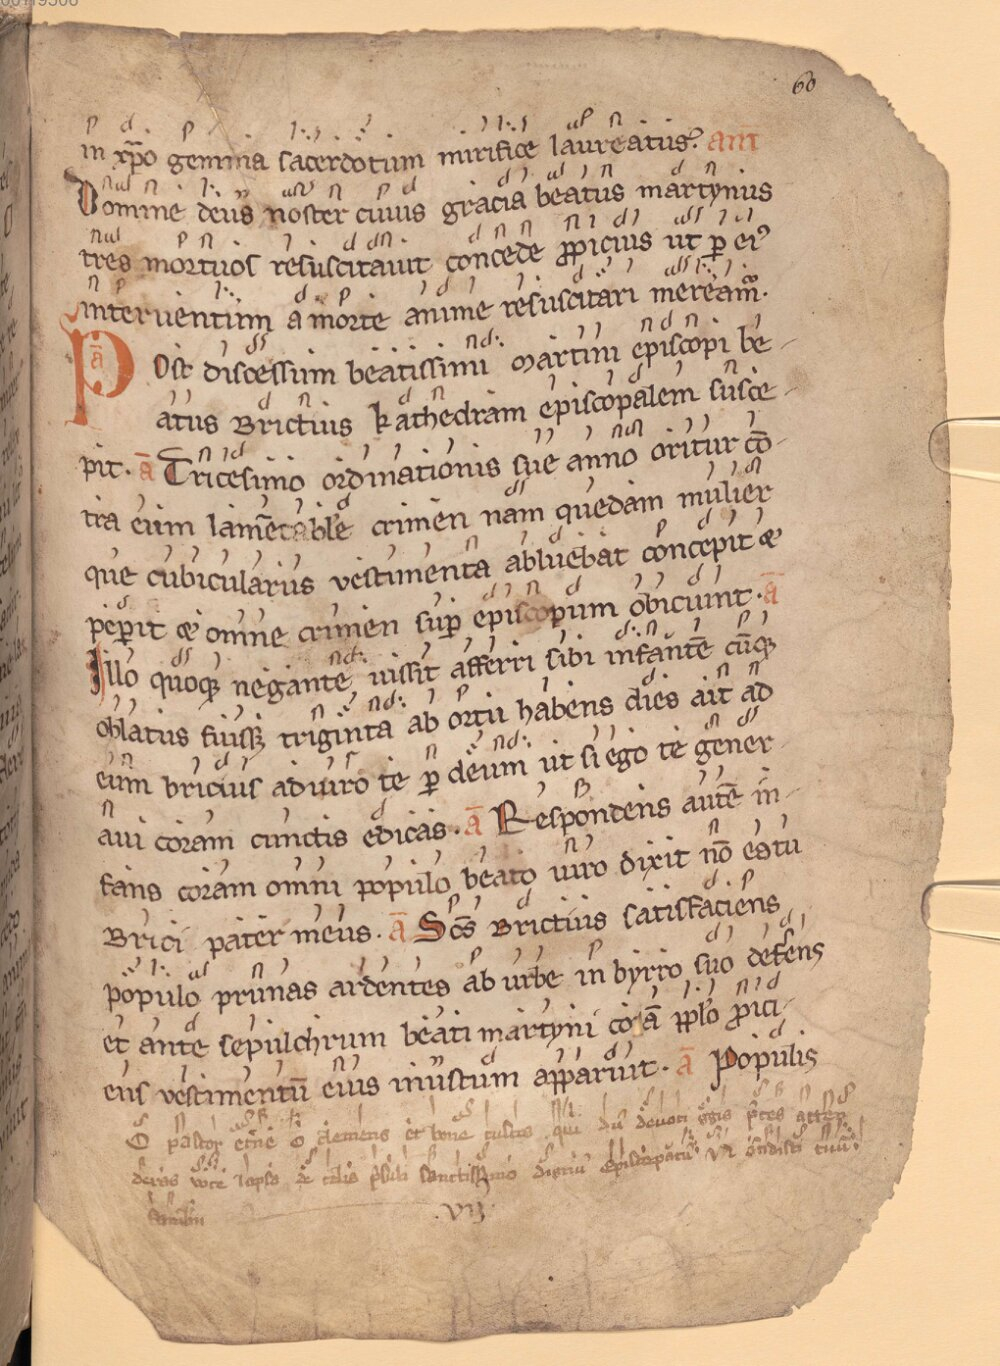 60
in xp̄o gemma sacerdotum mirifice laureatus. añ
Domine deus noster cuius gracia beatus martynius
tres mortuos resuscitauit concede ꝓpicius ut ꝑ ei᷒
interuentum a morte anime resuscitari mereamr̄.
ā Post discessum beatissimi martini episcopi be
atus Brictius kathedram episcopalem susce
pit. ā Tricesimo ordinationis sue anno oritur cō
tra eum lamētabile crimen nam quedam mulier
que cubicularius vestimenta abluebat concepit &
peꝑit & omne crimen suꝑ episcopum obiciunt. ā
Illo quoqꝫ negante iussit afferri sibi infantē cūqꝫ
oblatus fuissꝫ triginta ab ortu habens dies ait ad
eum bricius adiuro te ꝑ deum ut si ego te gener
aui coram cunctis edicas. ā Respondens autē in
fans coram omni populo beato uiro dixit nō es tu
Brici pater meus. ā Scs̄ Brictius satisfaciens
populo prunas ardentes ab urbe in byrro suo defens
et ante sepulchrum beati martyni corā ppl̄o ꝓici
ens vestimentū eius inustum apparuit. ā Populis
O pastor etne o clemens et bone custos qui dū deuoti gͤgis p̄ces atten
deres voce lapsa de celis p̄suli sanctissimo dignū episcopatū
familiū
.vij.